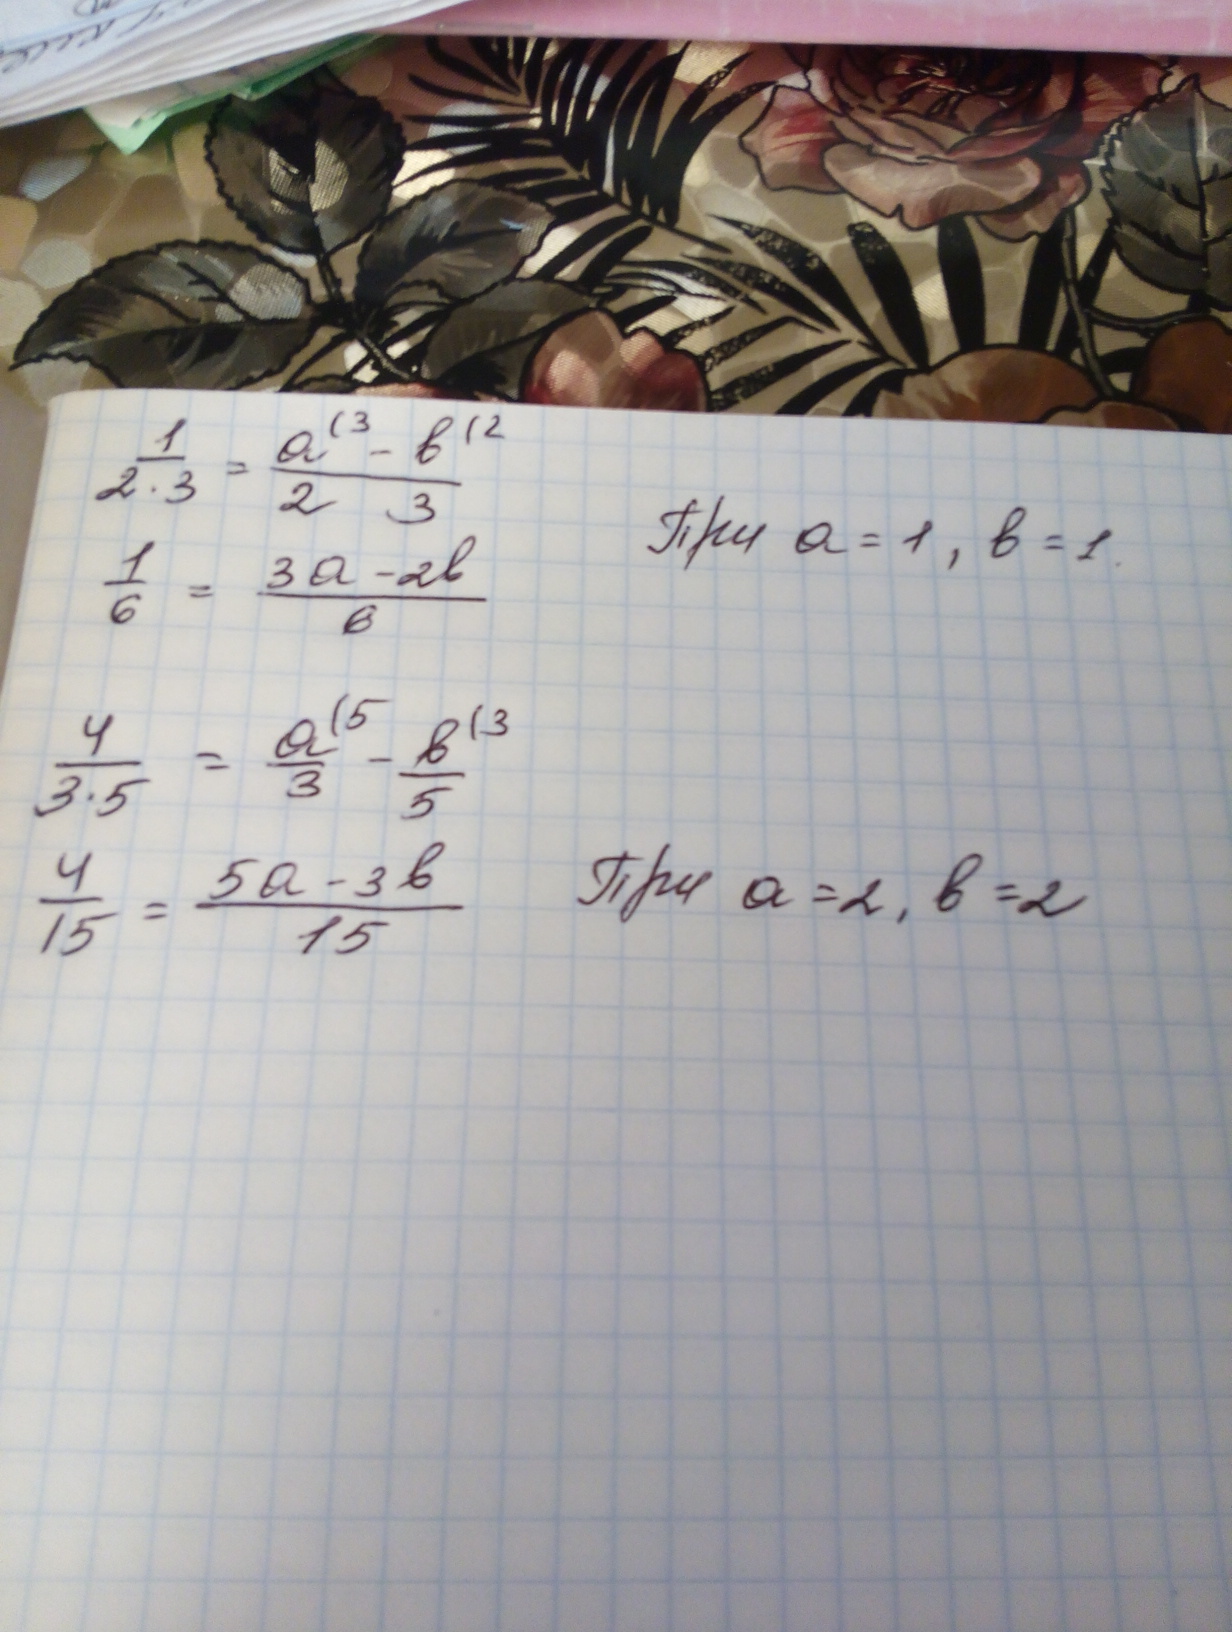 1/(2·3) = a⁽³/2 - b⁽²/3
1/6 = (3a - 2b)/6 При a = 1, b = 1.
4/(3·5) = a⁽⁵/3 - b⁽³/5
4/15 = (5a - 3b)/15 При a = 2, b = 2